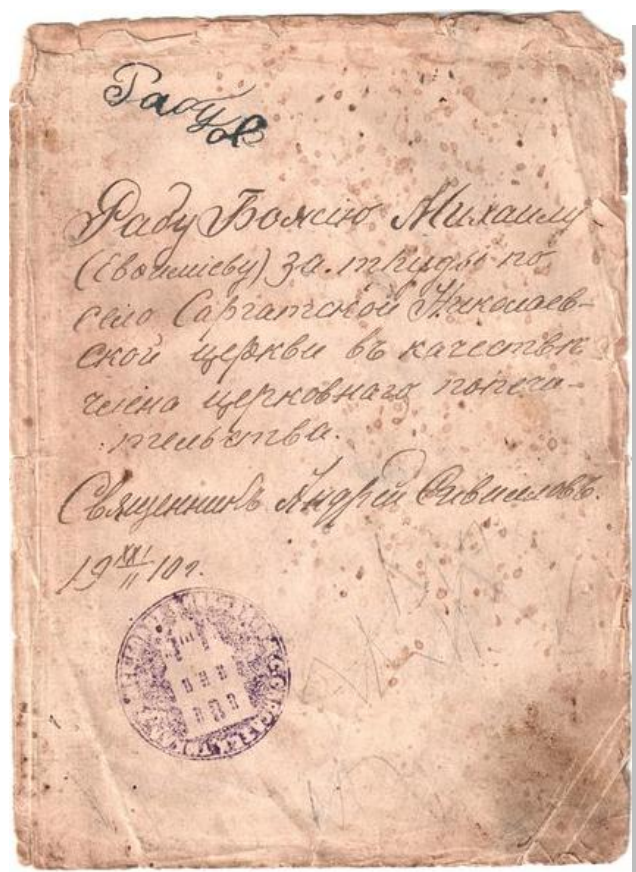 Рабу
Рабу Божію Михаилу
за труды по
село Саргатской Николаев-
ской церкви въ качествѣ
члена церковнаго попечи-
тельства.
Священникъ Андрей
19 XXI/II 10 г.